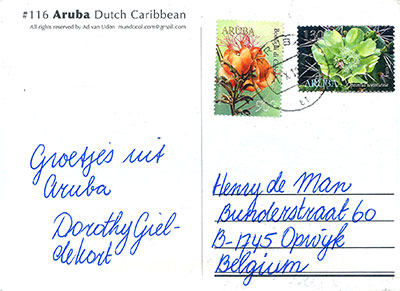 #116 Aruba Dutch Caribbean
All rights reserved by Ad van Uden mundocolor.com@gmail.com
ARUBA
130
ARUBA
Groetjes uit
Aruba
Dorothy Giel-
dekort
Henry de Man
Bunderstraat 60
B-1745 Opwijk
Belgium